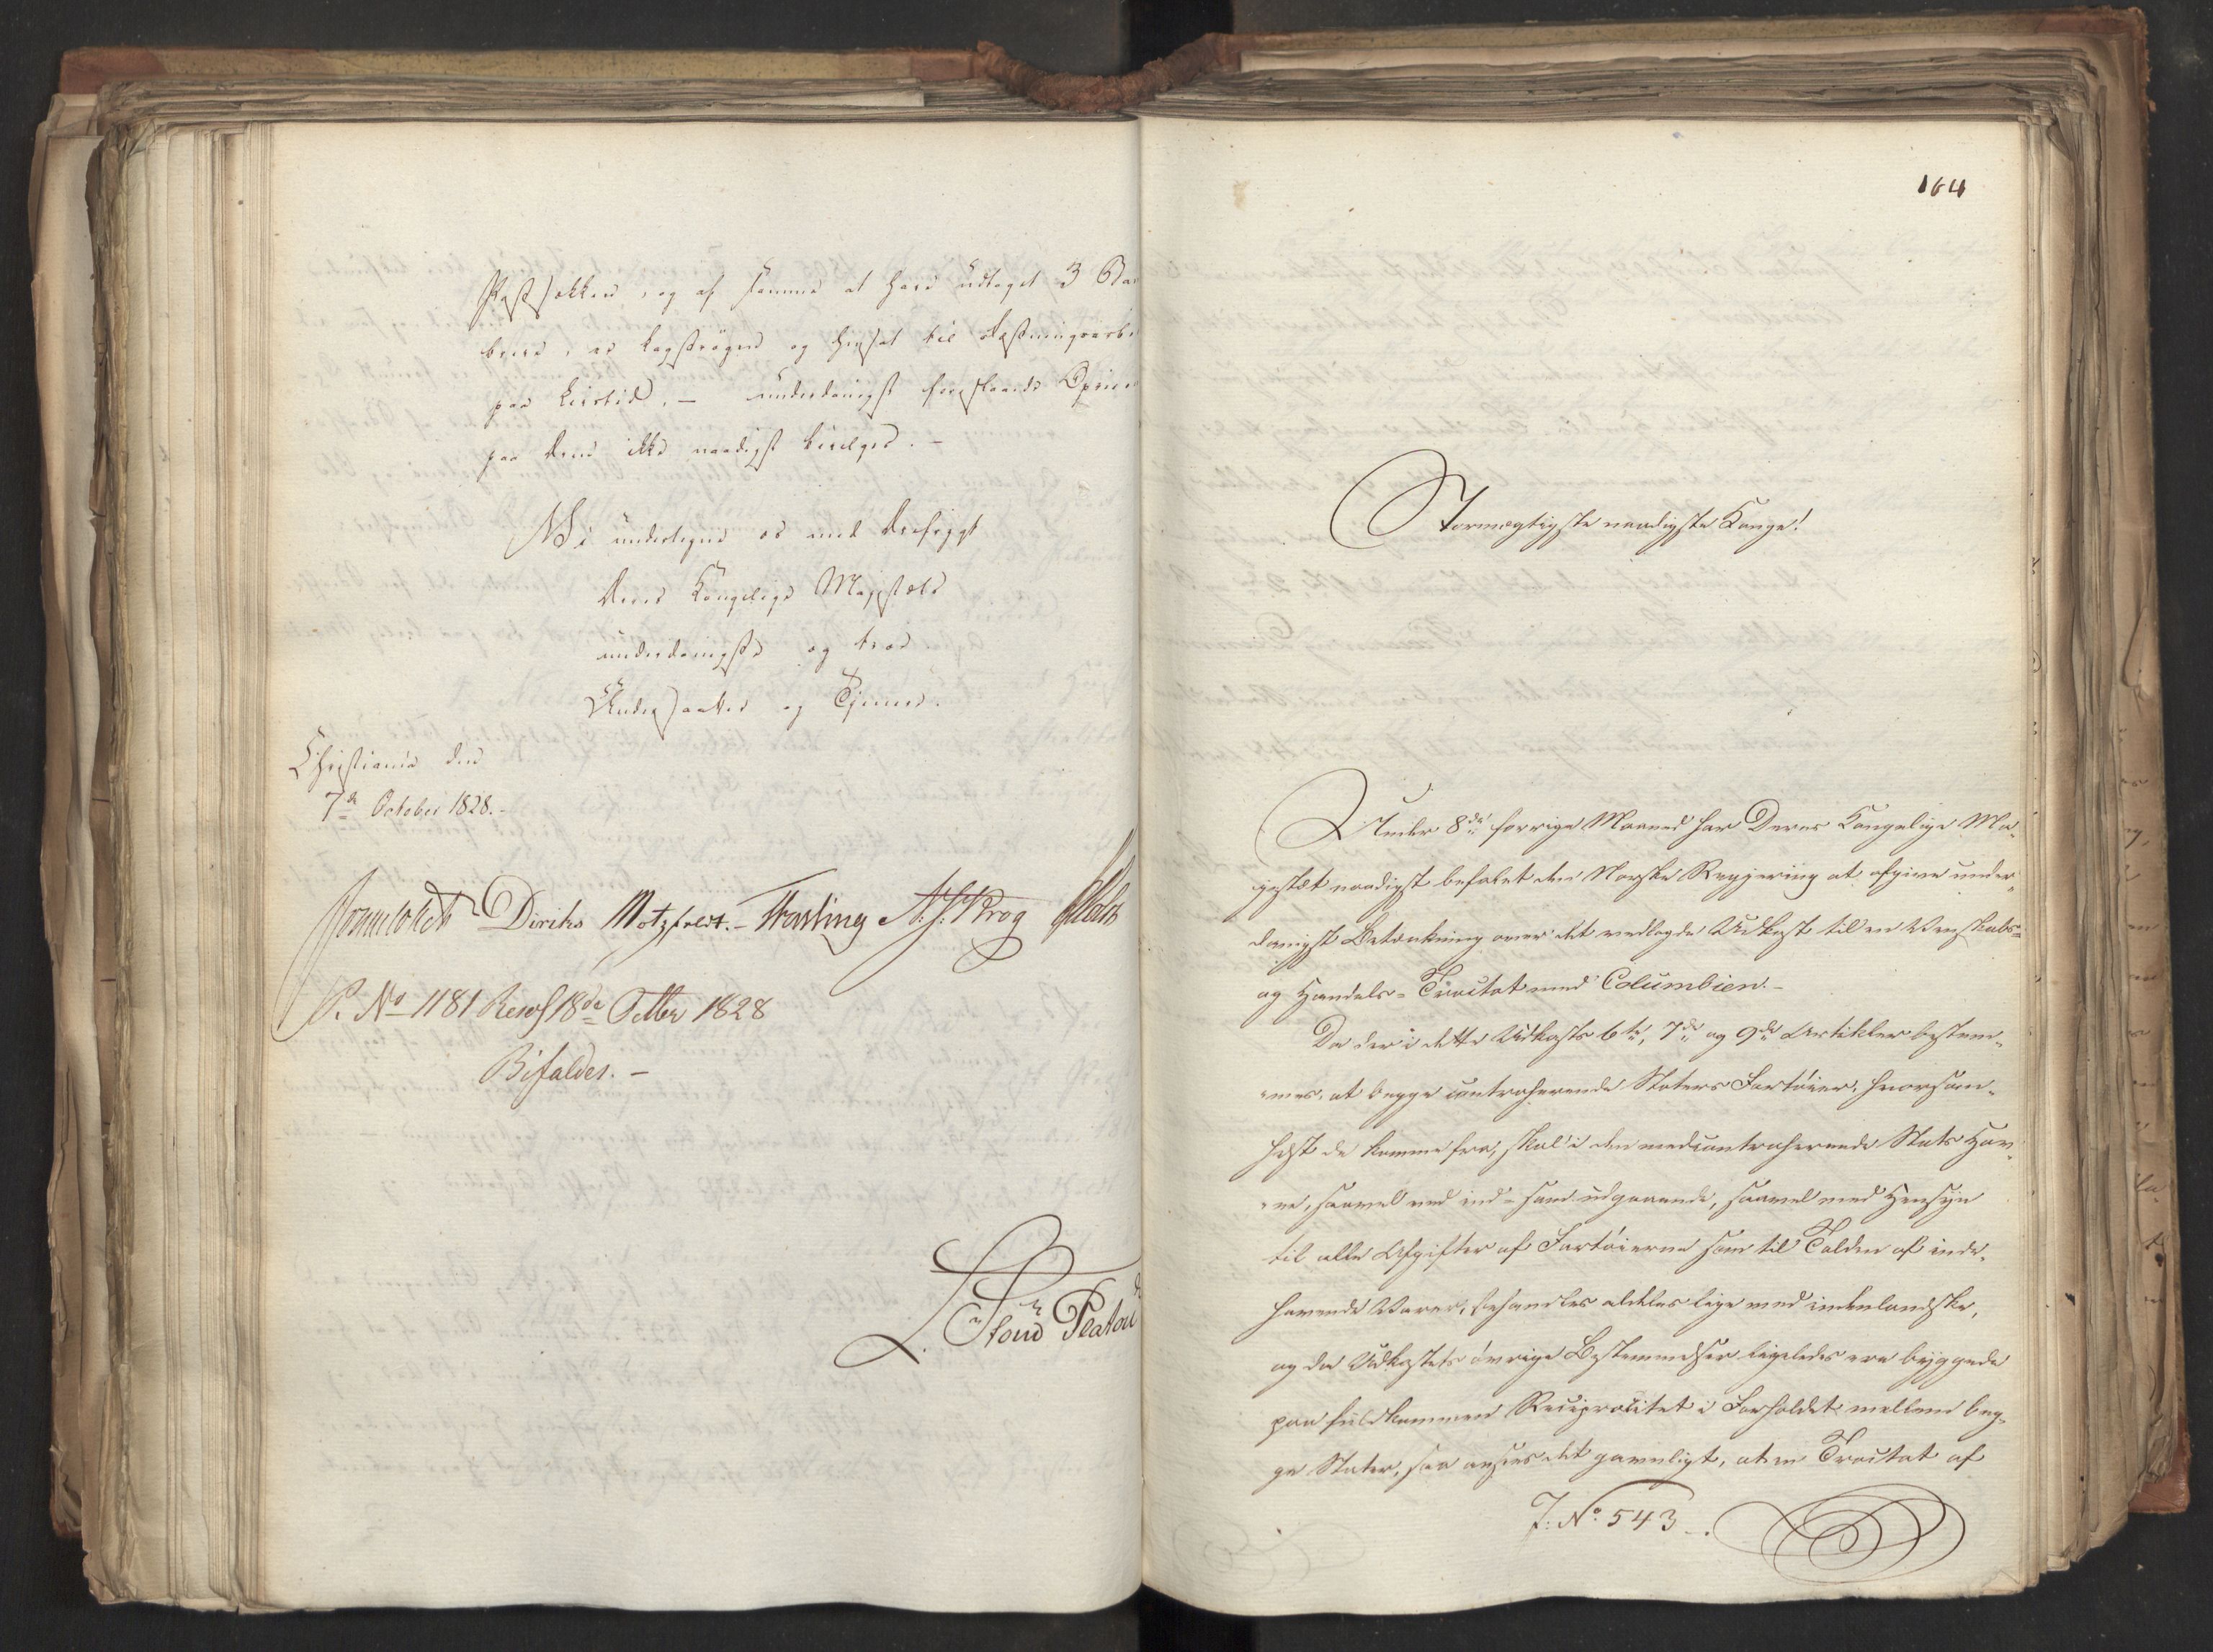 Postsækken, og af samme at have udtaget 3 Ban
breve, er lagstrøgen og hensat til Fæstningsarbei
paa Livstid. — underdanigst foreslaaede Opreis
paa Dem ikke naadigst bevilges. —
Vi undertegne os med Ærefrygt
Deres Kongelige Majestæts
underdanigste og troe
Undersaatter og Tjenere.
Christiania den
7de October 1828. -
Sommerhielm Diriks Motzfeldt. - Fasting A. J. Krog Holst
P. No 1181 Resol 18de Octbr 1828
Bifaldes. —
L. Stoud Platou
164
Stormægtigste naadigste Konge!
Under 8de forrige Maaned har Deres Kongelige Ma-
jestæt naadigst befalet den Norske Regjering at afgive under-
danigst Betænkning over det vedlagde Udkast til en Venskabs-
og Handels-Tractat med Columbien. -
Da der i dette Udkasts 6te, 7de og 9de Artikler bestem-
mes, at begge contraherende Staters Fartøier, hvorsom-
helst de komme fra, skal i den medcontraherende Stats Hav-
ne, saavel ved ind- som udgaaende, saavel med Hensyn
til alle Afgifter af Fartøierne som til Tolden af inde-
havende Varer, behandles aldeles lige med indenlandske,
og da Udkastets øvrige Bestemmelser ligeledes ere byggede
paa fuldkommen Reciprocitet i Forholdet mellem beg-
ge Stater, saa ansees det gavnligt, at en Tractat af
J: No 543 -.